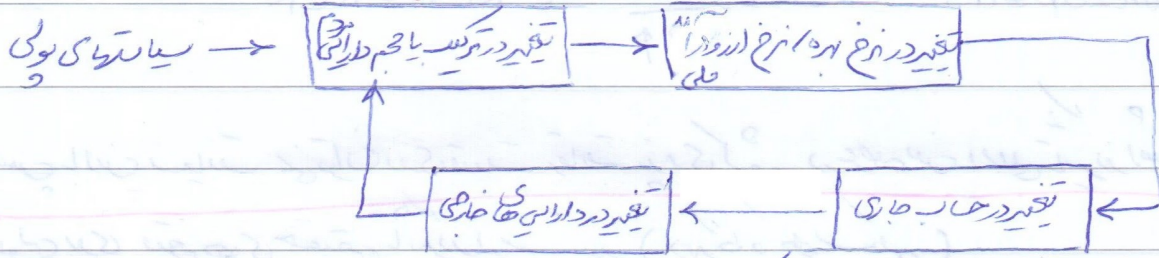 سیاستهای پولی → تغییر در ترکیب یا حجم دارائی مردم → تغییر در نرخ بهره / نرخ ارز و درآمد ملی
تغییر در حساب جاری → تغییر در دارایی های خارجی